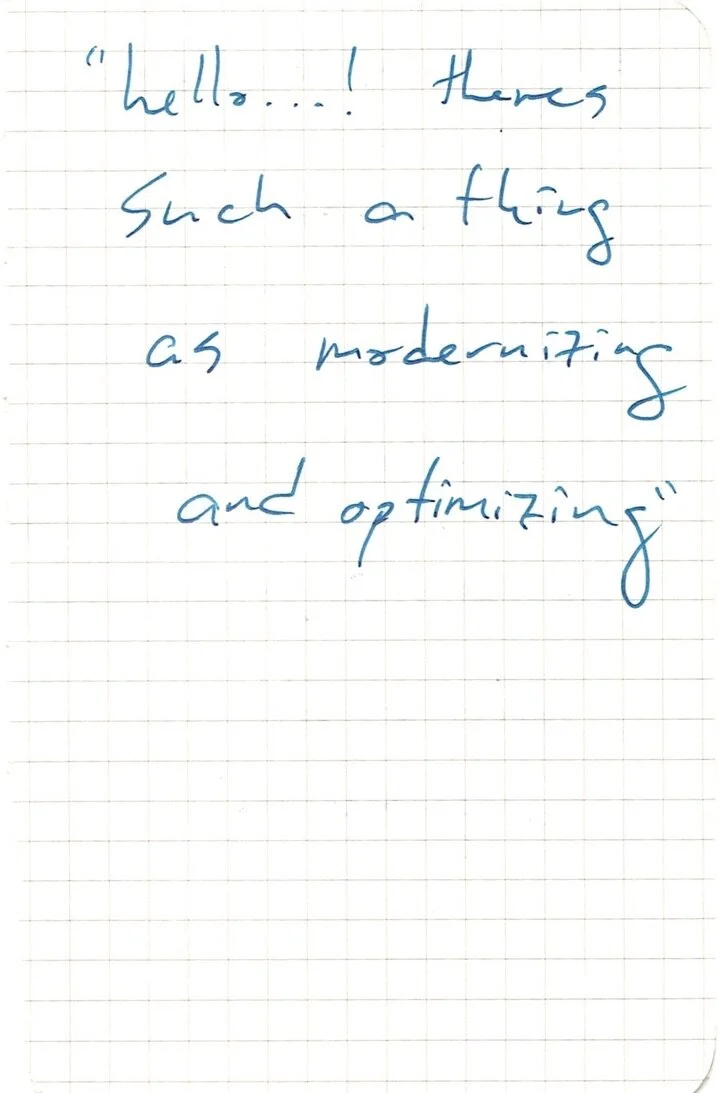 "hello...! theres
such a thing
as modernizing
and optimizing"